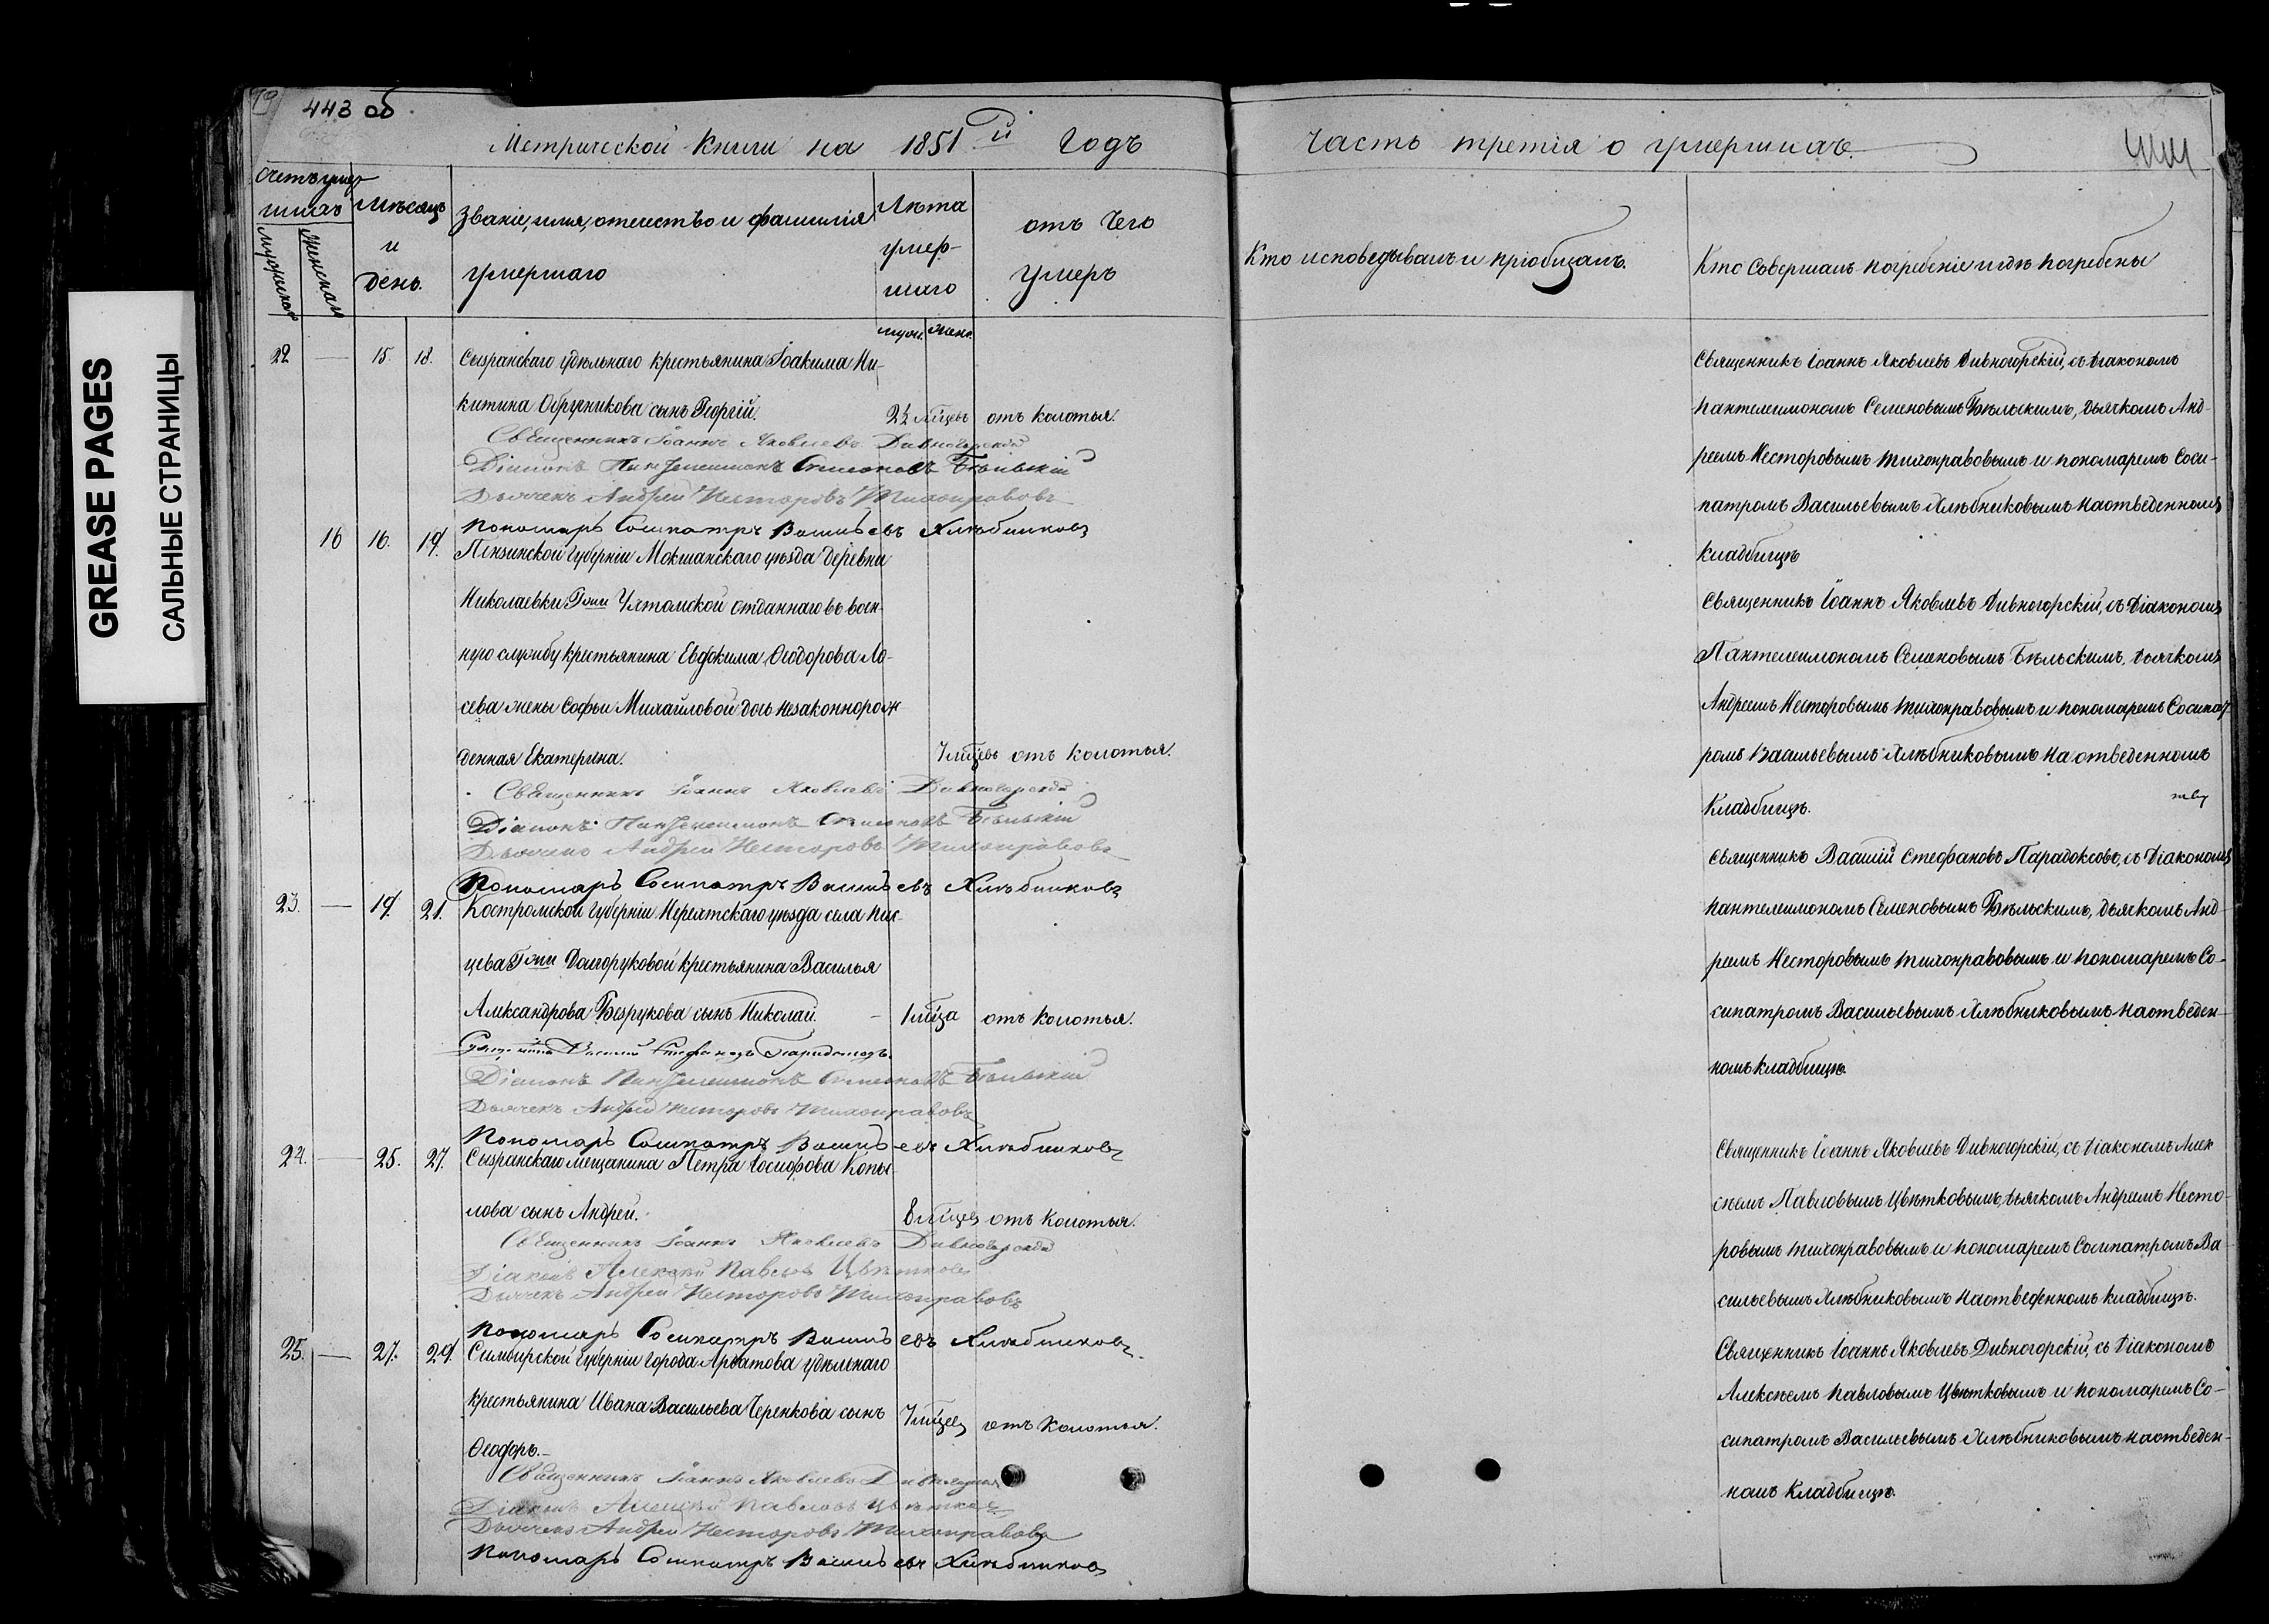 GREASE PAGES
САЛЬНЫЕ СТРАНИЦЫ
443 об
Метрической Книги на 1851й Годъ
Счетъ умер-
шихъ
Мужеска
Женска
Мѣсяцъ
и
день.
Званіе, имя, отчество и фамилія
умершаго
Лѣта
умер-
шаго
муж. жен.
отъ Чего
Умеръ
22 — 15. 18. Сызранскаго удѣльнаго крестьянина Іоакима Ни-
китина Обручникова сынъ Георгій. отъ колотья.
Священникъ Іоаннъ Яковлевъ Дивногорскій
Діаконъ Пантелеимонъ Семеновъ Бѣльскій
Дьячекъ Андрей Несторовъ Тихонравовъ
Пономарь Сосипатръ Васильевъ Хлѣбниковъ
16 16. 19. Пензинской губерніи Мокшанскаго уѣзда деревни
Николаевки Гжи отданнаго въ воен-
ную службу крестьянина Евдокима Ѳеодорова Ло-
сева жены Софьи Михайловой дочь незаконнорож
денная Екатерина. отъ колотья.
Священникъ Іоаннъ Яковлевъ Дивногорскій
Діаконъ Пантелеимонъ Семеновъ Бѣльскій
Дьячекъ Андрей Несторовъ Тихонравовъ
Пономарь Сосипатръ Васильевъ Хлѣбниковъ
23. — 19. 21. Костромской губерніи Нерехтскаго уѣзда села Пис-
цева Гжи Долгоруковой крестьянина Василья
Александрова Безрукова сынъ Николай. — отъ колотья.
Священникъ Василій Стефановъ Парадоксовъ
Діаконъ Пантелеимонъ Семеновъ Бѣльскій
Дьячекъ Андрей Несторовъ Тихонравовъ
Пономарь Сосипатръ Васильевъ Хлѣбниковъ
24. — 25. 27. Сызранскаго мещанина Петра Іосифова Копы-
лова сынъ Андрей. отъ колотья.
Священникъ Іоаннъ Яковлевъ Дивногорскій
Діаконъ Алексѣй Павловъ Цвѣтковъ
Дьячекъ Андрей Несторовъ Тихонравовъ
Пономарь Сосипатръ Васильевъ Хлѣбниковъ
25. — 27. 29. Симбирской губерніи города Ардатова удѣльнаго
крестьянина Ивана Васильева Черенкова сынъ отъ колотья.
Ѳеодоръ.
Священникъ Іоаннъ Яковлевъ Дивногорскій
Діаконъ Алексѣй Павловъ Цвѣтковъ
Дьячекъ Андрей Несторовъ Тихонравовъ
Пономарь Сосипатръ Васильевъ Хлѣбниковъ
Часть третія о умершихъ.
Кто исповедывалъ и пріобщалъ.
Кто Совершалъ погребеніе и гдѣ погребены
Священникъ Іоаннъ Яковлевъ Дивногорскій, съ діакономъ
Пантелеимономъ Семеновымъ Бѣльскимъ, дьячкомъ Анд-
реемъ Несторовымъ Тихонравовымъ и пономаремъ Соси-
патромъ Васильевымъ Хлѣбниковымъ на отведенномъ
кладбищѣ
Священникъ Іоаннъ Яковлевъ Дивногорскій, съ Діакономъ
Пантелеимономъ Семеновымъ Бѣльскимъ, дьячкомъ
Андреемъ Несторовымъ Тихонравовымъ и пономаремъ Сосипат
ромъ Васильевымъ Хлѣбниковымъ на отведенномъ
Кладбищѣ.
Священникъ Василій Стефановъ Парадоксовъ, съ Діакономъ
Пантелеимономъ Семеновымъ Бѣльскимъ, дьячкомъ Анд-
реемъ Несторовымъ Тихонравовымъ и пономаремъ Со-
сипатромъ Васильевымъ Хлѣбниковымъ на отведен-
номъ кладбищѣ.
Священникъ Іоаннъ Яковлевъ Дивногорскій, съ діакономъ Алек
сѣемъ Павловымъ Цвѣтковымъ, дьячкомъ Андреемъ Несто-
ровымъ Тихонравовымъ и пономаремъ Сосипатромъ Ва
сильевымъ Хлѣбниковымъ на отведенномъ кладбищѣ.
Священникъ Іоаннъ Яковлевъ Дивногорскій, съ діакономъ
Алексѣемъ Павловымъ Цвѣтковымъ и пономаремъ Со-
сипатромъ Васильевымъ Хлѣбниковымъ на отведен-
номъ Кладбищѣ.